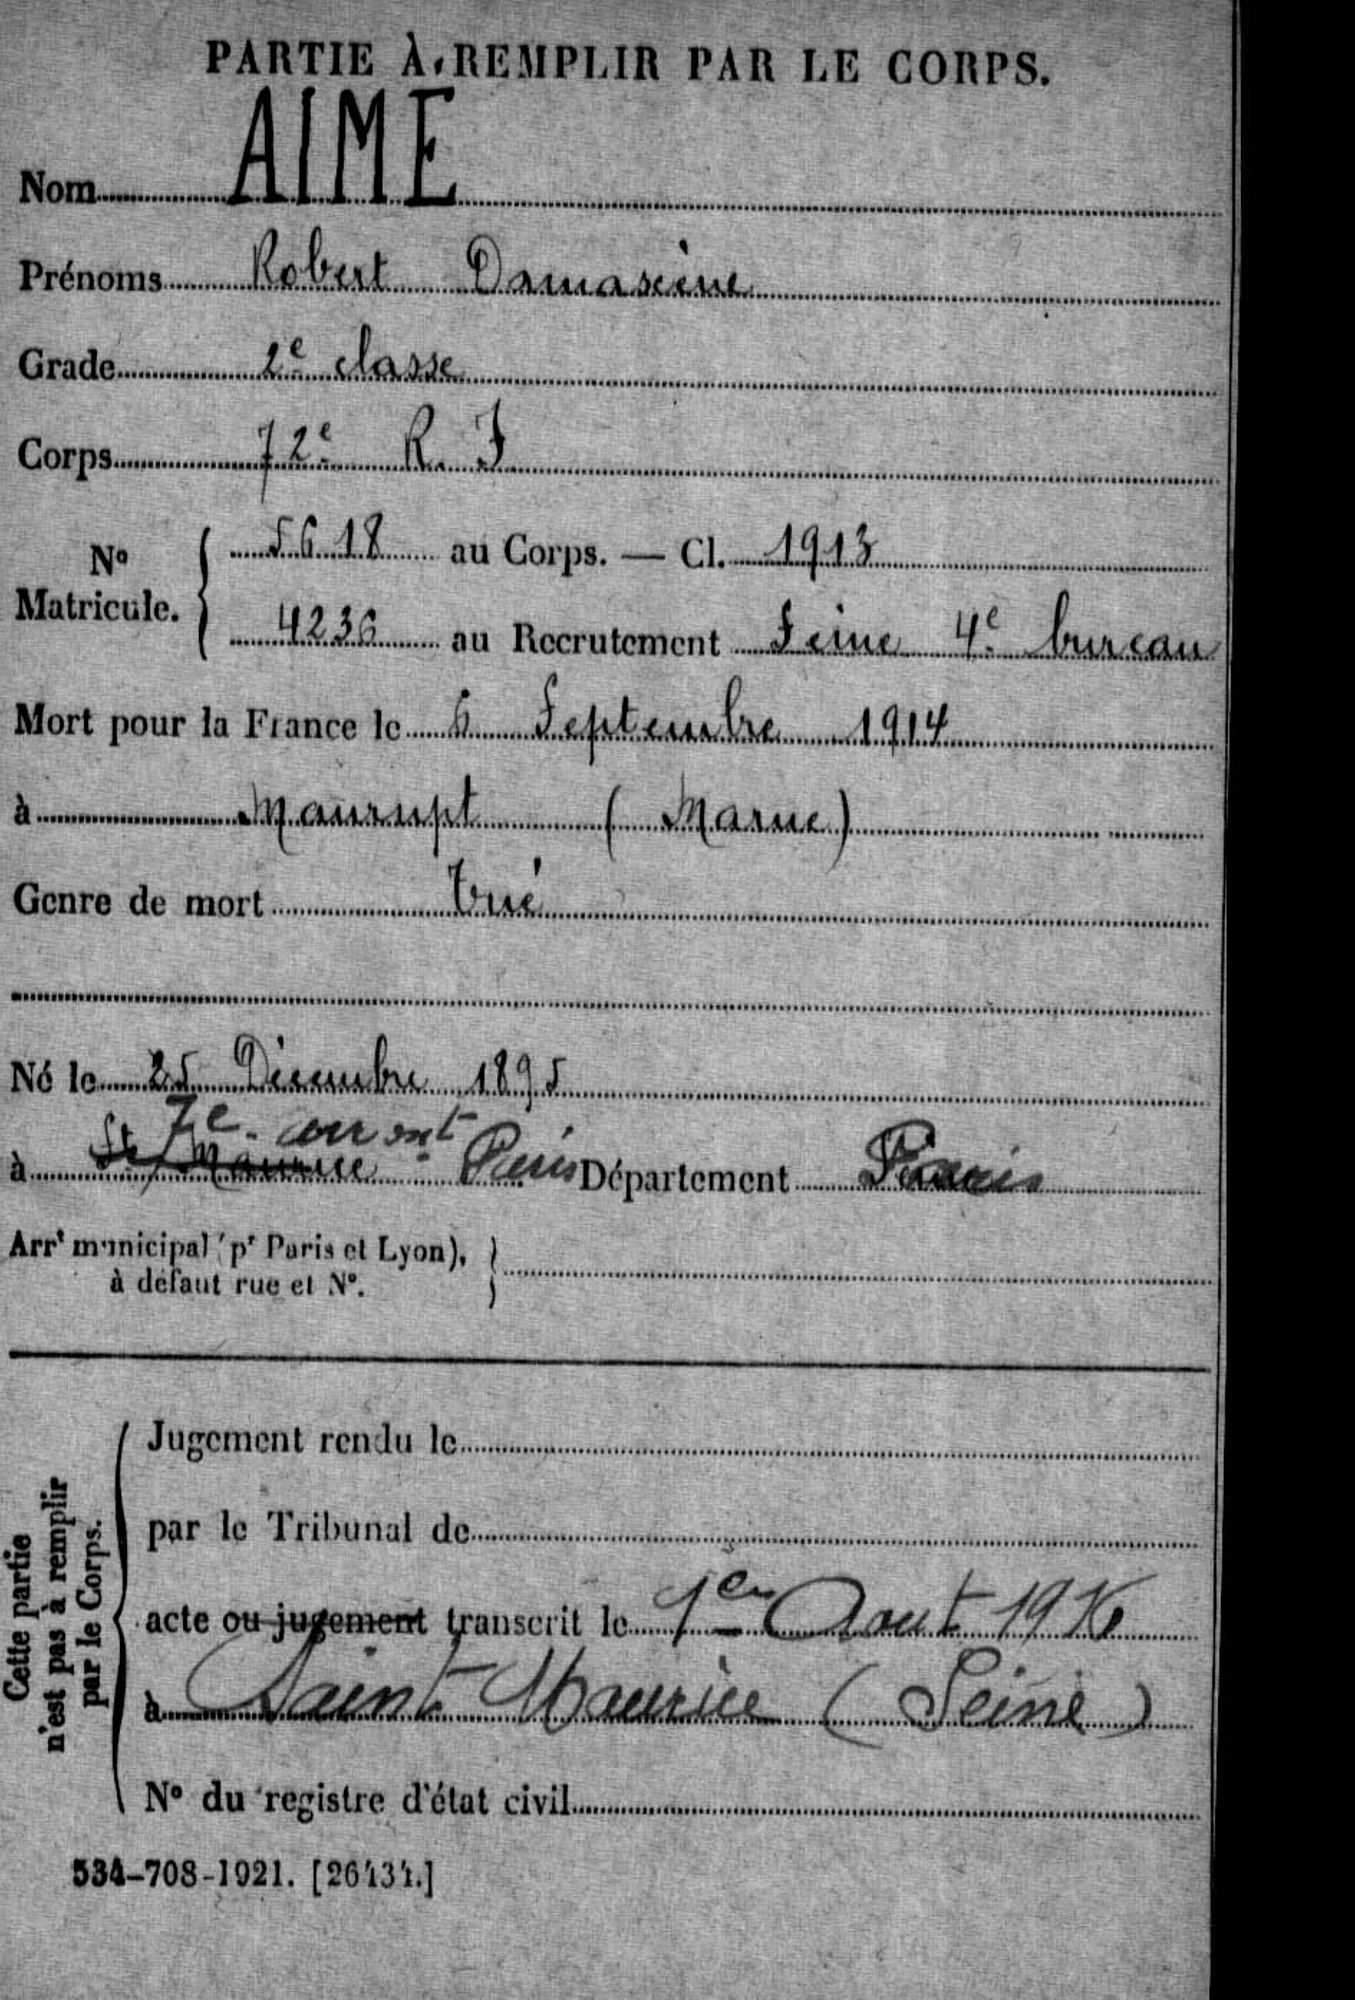 PARTIE À REMPLIR PAR LE CORPS.
Nom AIME
Prénoms Robert Damascène
Grade 2e classe
Corps 72e R. I
No Matricule. { 5618 au Corps. — Cl. 1913
4236 au Recrutement Seine 4e bureau
Mort pour la France le 6 Septembre 1914
à Maurupt (Marne)
Genre de mort tué
Né le 25 Décembre 1895
7e arront
à St Maurice Paris Département Paris
Arrt municipal (pr Paris et Lyon), }
à défaut rue et No.
Cette partie
n'est pas à remplir
par le Corps.
Jugement rendu le
par le Tribunal de
acte ou jugement transcrit le 1er Aout 1916
à Saint Maurice (Seine)
No du registre d'état civil
534-708-1921. [26434.]